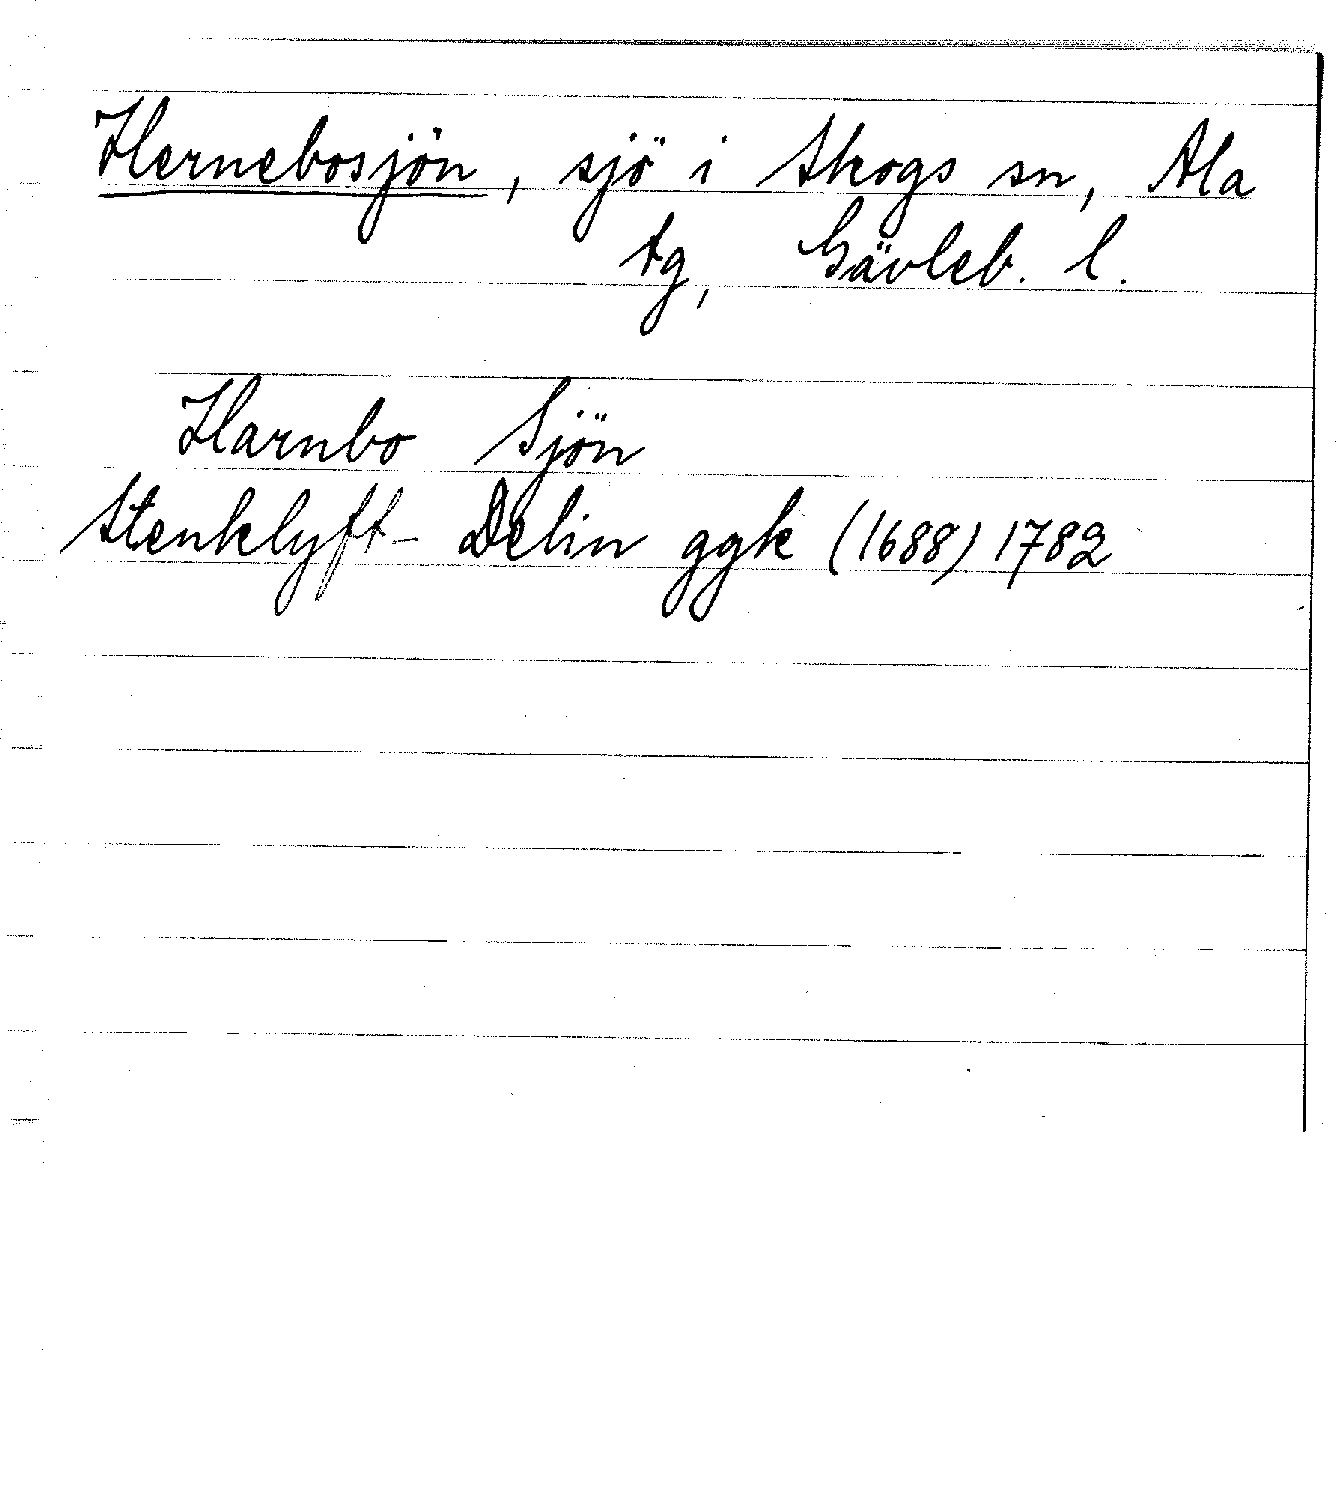 Hernebosjön, sjö i Skogs sn, Ala
tg, Gävleb. l.
Harnbo Sjön
Stenklyft-Delin ggk (1688) 1782